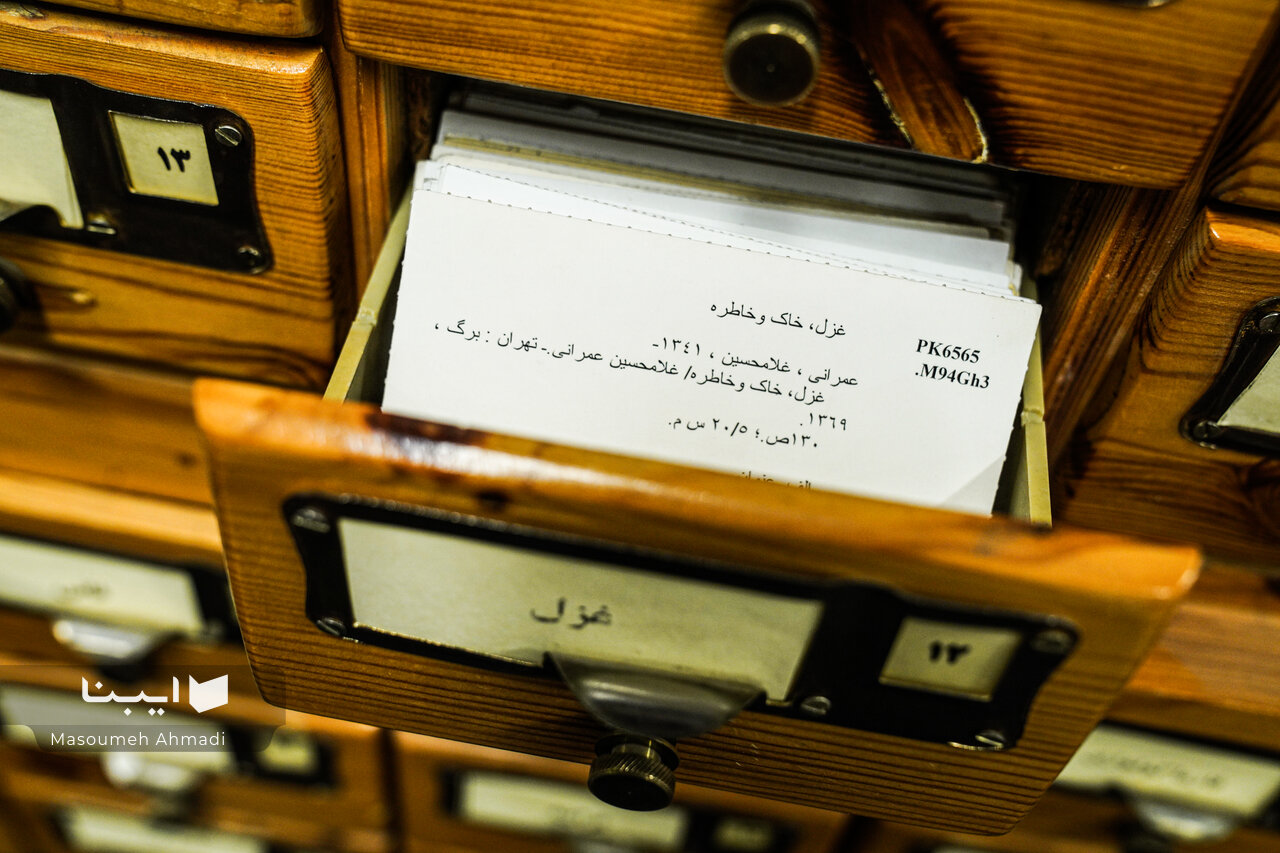 ۱۳
غزل، خاک وخاطره
PK6565
.M94Gh3
عمرانی ، غلامحسین ، ١٣٤١ـ
غزل، خاک وخاطره/ غلامحسین عمرانی.ـ تهران : برگ ،
١٣٦٩.
١٣٠ص.؛ ٢٠/٥ س م.
غزل
۱۲
ایبنا
Masoumeh Ahmadi